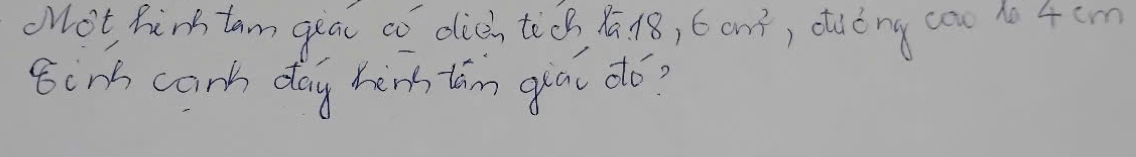 Một hình tam giác có diện tích là 18,6 cm², đường cao là 4 cm
Tính cạnh đáy hình tam giác đó?